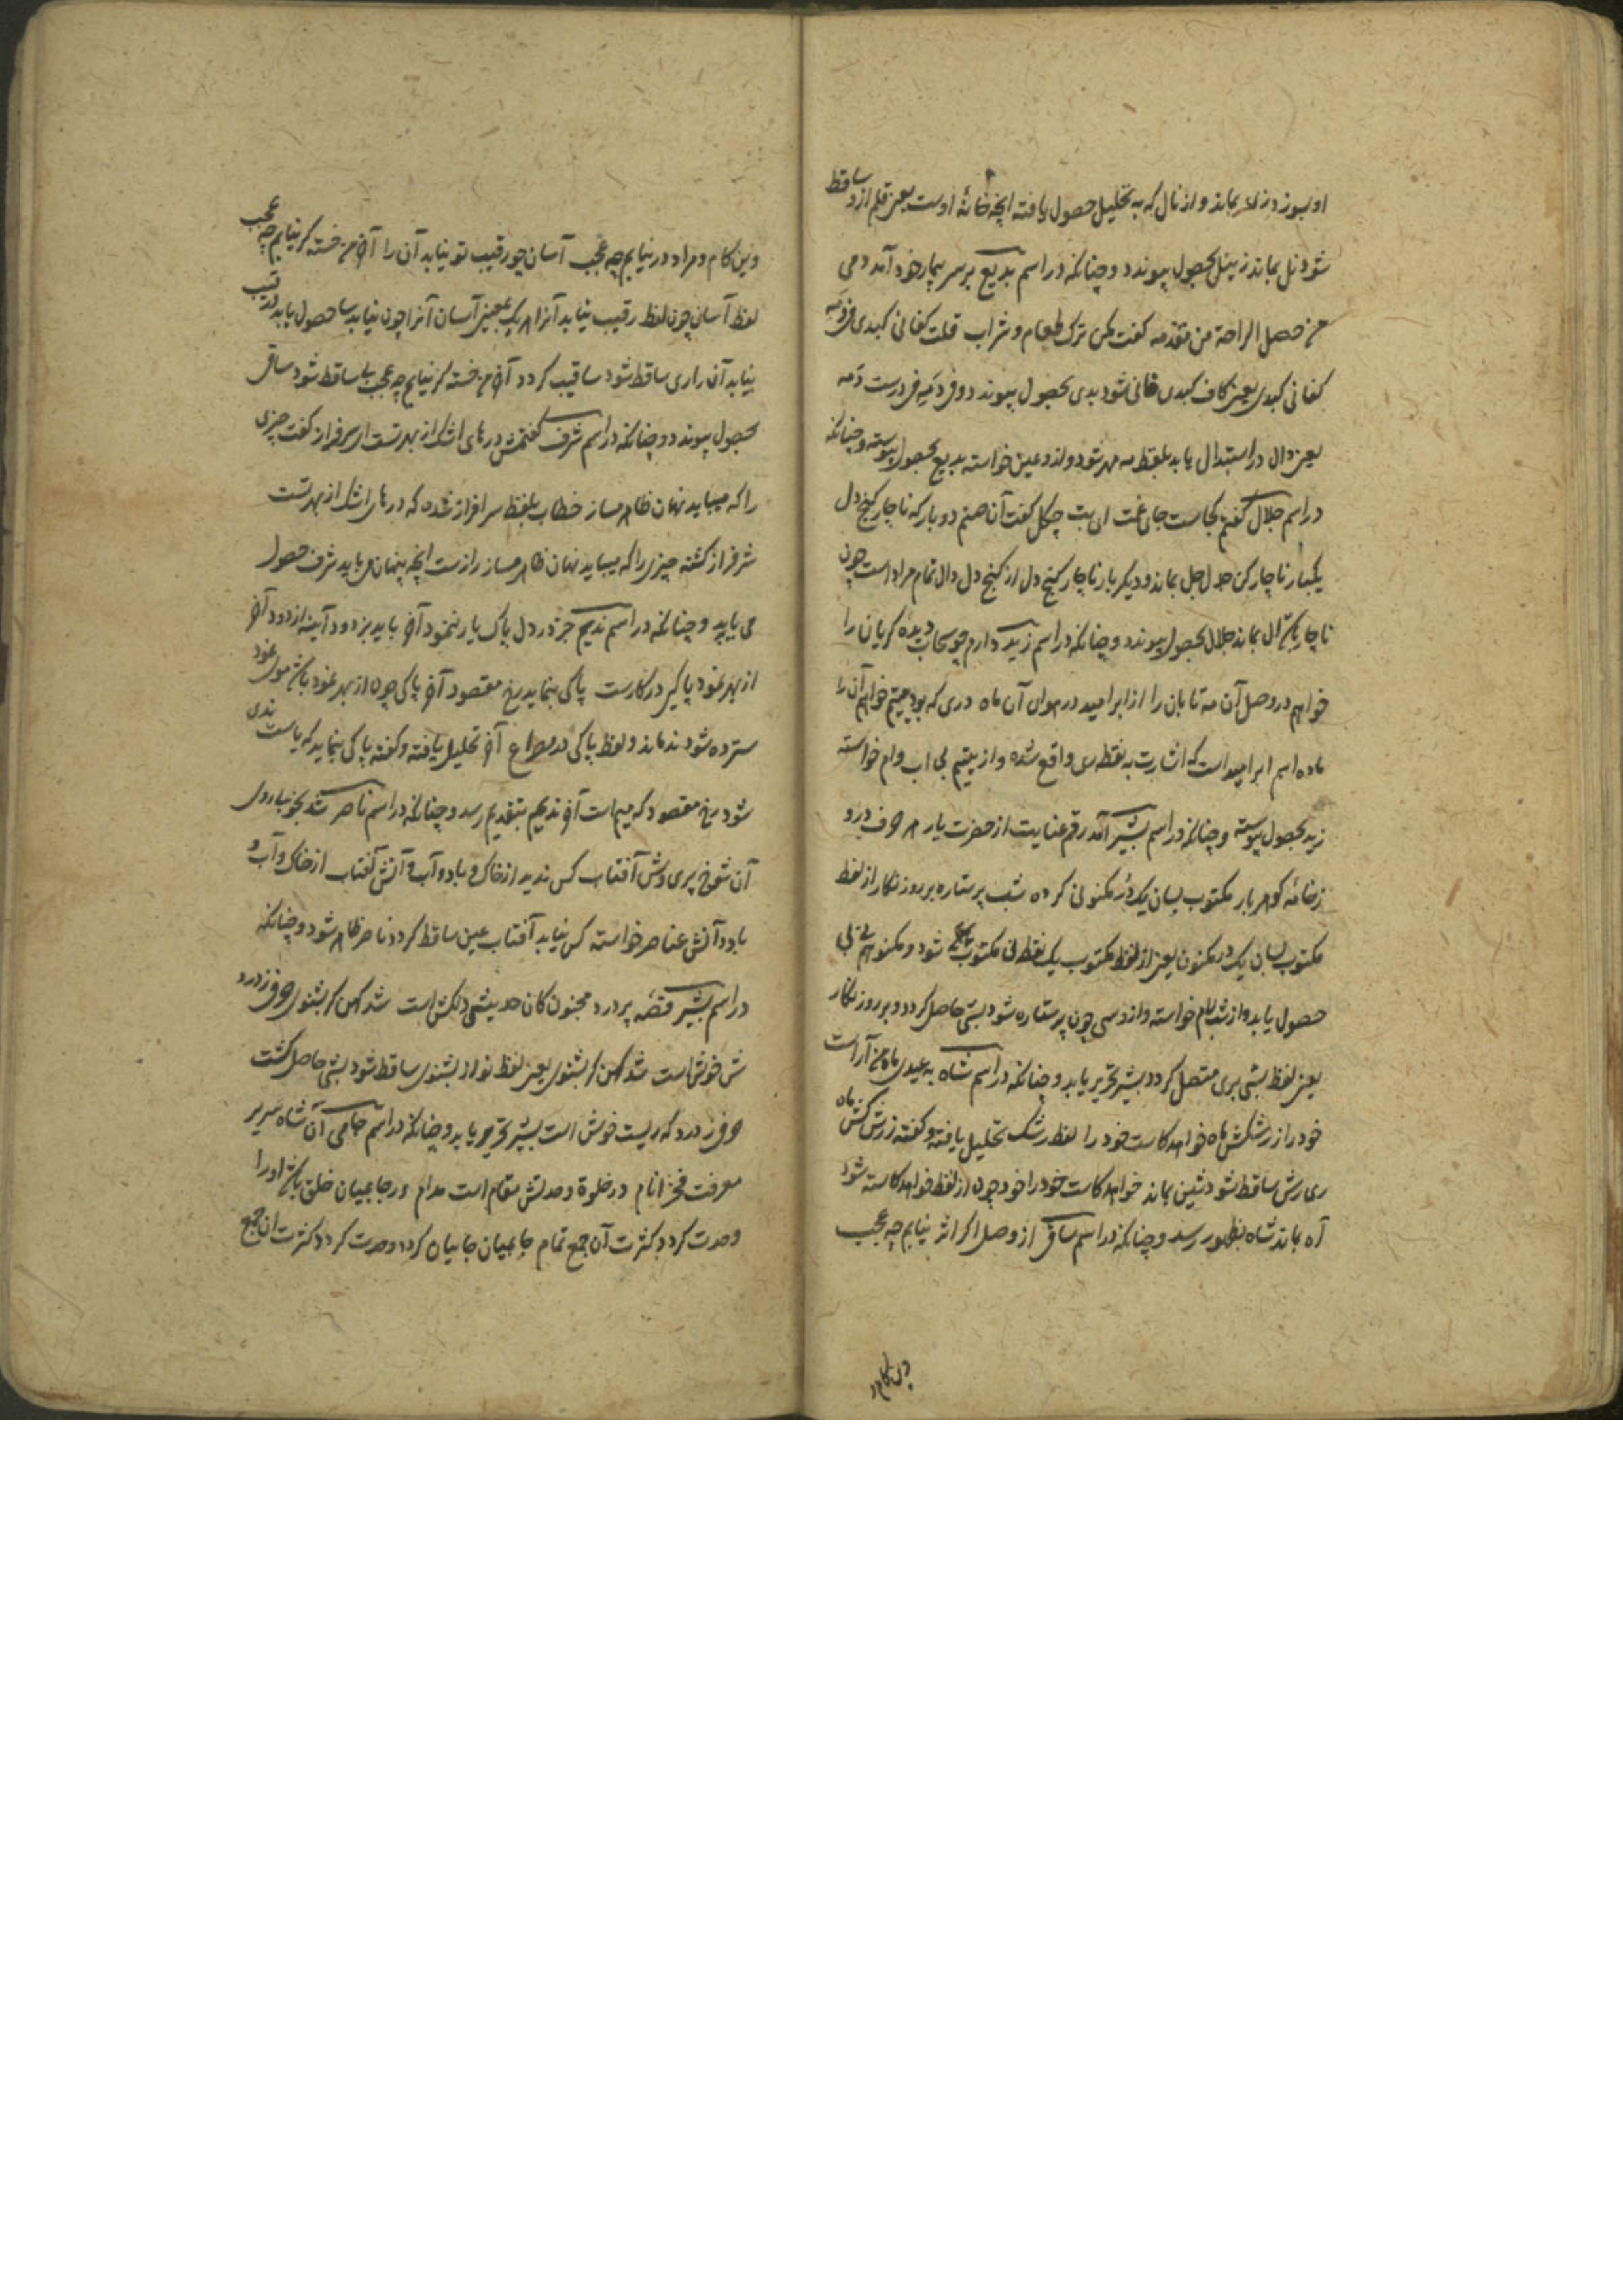 او بسوزد زلا بماند و از نال که به تحلیل حصول یافته انچه خانهٔ اوست یعنی قلم ازو ساقط
شود نل بماند زینل بحصول پیوندد و چنانکه در اسم بدیع بر سر بیمار خود آمد دمی
من حصل الراحة من مقدمه گفت بکن ترک طعام و شراب قلت کفانی کبدی فی دمه
کفانی کبدی یعنی کاف کبدی فانی شود بدی بحصول پیوندد و فی دمه فی درست دمه
یعنی دال در استبدال یابد بلفظ مه مه شود و ازو عین خواسته بدیع بحصول پیوسته و چنانکه
در اسم جلال گفتم کجاست جای غمت ای بت چگل گفت آن صنم دو بار که ناچار کنج دل
یکبار ناچار کن جدل جل بماند و دیگر بار ناچار کنج دل از کنج دل دال تمام مراد است چون
ناچار یکی ال بماند جلال بحصول پیوندد و چنانکه در اسم زید دارم چو سحاب دیده گریان را
خواهم در وصل آن مه تابان را از ابر امید در هوای آن ماه دری که بود یتیم خواهم آن را
ماده اسم ابر امید است که اشارت به نقطه ری واقع شده و از یتیم بی اب و ام خواسته
زید بحصول پیوسته و چنانکه در اسم بشیر آمد رقم عنایت از حضرت یار هر حرف درو
ز خامهٔ گوهر بار مکتوب بسان یک در مکنونی کرده شب پر ستاره بر روز نگار از لفظ
مکتوب بسان یک در مکنون یعنی از لفظ مکتوب یک نقطه نی مکتوب شود و مکنو هم نی بی
حصول یابد و از شب لام خواسته و ازو سی چون پر ستاره شود بشی حاصل گردد و بر روز نگار
یعنی لفظ بشی بری متصل گردد بشیر تحریر یابد و چنانکه در اسم شاه به عیدی ماه من آراست
خود را ز رشکش ماه خواهد کاست خود را لفظ رشک تحلیل یافته و گفته ز رش کش ماه
ری رش ساقط شود شین بماند خواهد کاست خود را خود چون از لفظ خواهد کاسته شود
آه بماند شاه بظهور رسد و چنانکه در اسم ساقی از وصل اگر اثر نیابم چه عجب
وین کام و
وین کام و مراد در نیابم چه عجب آسان چو رقیب تو نیابد آن را آخر من خسته گر نیابم چه عجب
لفظ آسان چون لفظ رقیب نیابد آنرا هر یک یعنی آسان آنرا چون نیابد سا حصول یابد و رقیب
نیابد آن را ری ساقط شود ساقیب گردد آخر من خسته گر نیابم چه عجب یا ساقط شود ساقی
بحصول پیوندد و چنانکه در اسم شرف گفتمش درهای اشک از بهر تست ای سرفراز گفت چیزی
را که میباید نهان ظاهر مساز خطاب بلفظ سرافراز شده که درهای اشک از بهر تست
شرفراز گشته چیزی را که میباید نهان ظاهر مساز رازست انچه پنهان می باید شرف حصول
می یابد و چنانکه در اسم ندیم جز در دل پاک یار ننمود آخر باید بزدود آینه از دود آخر
از بهر نمود پاکی در کارست پاکی بنماید رخ مقصود آخر پاکی چون از بهر نمود یکی موی نمود
سترده شود ند ماند و لفظ پاکی در مصراع آخر تحلیل یافته و گفته پا کی بنماید که یاست ندی
شود رخ مقصود که میم است آخر ندیم بتقدیم رسد و چنانکه در اسم ناصر شد بخوبی روی
آن شوخ پری وش آفتاب کس ندید از خاک و باد و آب و آتش آفتاب از خاک و آب و
باد و آتش عناصر خواسته کس نیابد آفتاب عین ساقط گردد ناصر ظاهر شود و چنانکه
در اسم بشیر قصهٔ پر درد مجنون کان حدیثی دلکش است شد کهن گر بشنوی حرفی ز درد
ش خوش است شد کهن گر بشنوی یعنی لفظ نو از بشنوی ساقط شود بشی حاصل گشت
حرفی ز درد که ریست خوش است بشیر تحریر یابد و چنانکه در اسم جامی آن شاه سریر
معرفت فخر انام در خلوة وحدتش مقام است مدام در جایمیان خلق یکی او را
وحدت گردد کثرت آن جمع تمام جایمیان جا بیان گردد وحدت گردد کثرت آن جمع